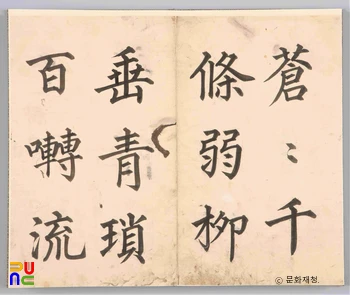 蒼〻千
條弱柳
垂青瑣
百囀流
PUNC
© 문화재청.